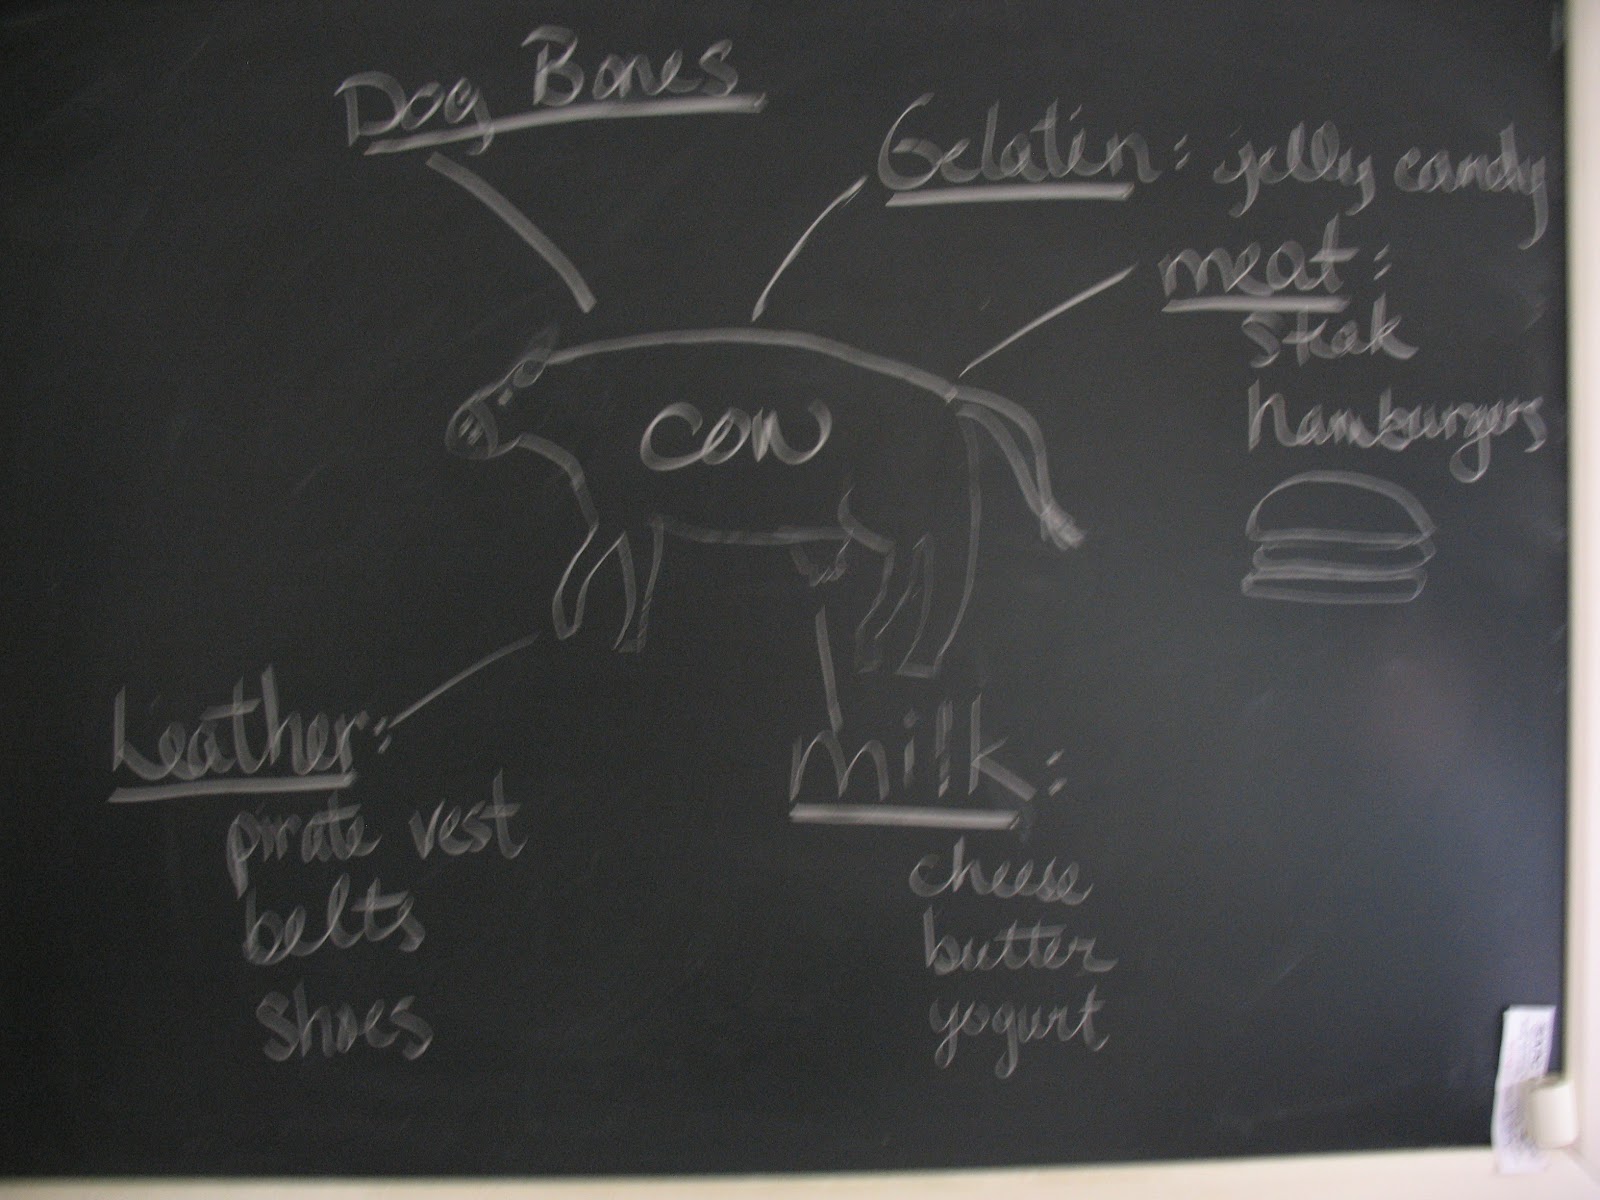 Dog Bones
Gelatin: jelly candy
meat:
steak
hamburgers
cow
Leather:
pirate vest
belts
shoes
Milk:
cheese
butter
yogurt